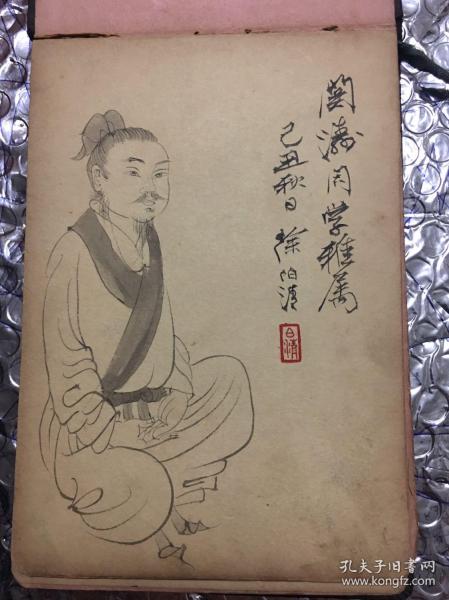 関涛同学雅属
己丑秋日 徐伯清
伯清
孔夫子旧书网
www.kongfz.com